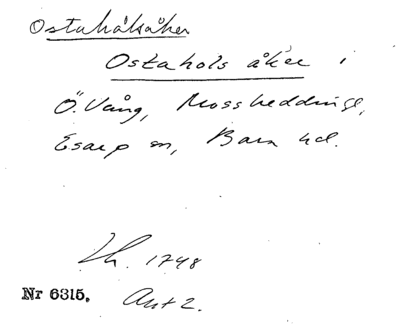 Ostahålsåker
Ostahols åker i
Ö. Vång, Mossheddinge,
Esarp sn, Bara hd.
Lh. 1748
Nr 6315. Akt 2.